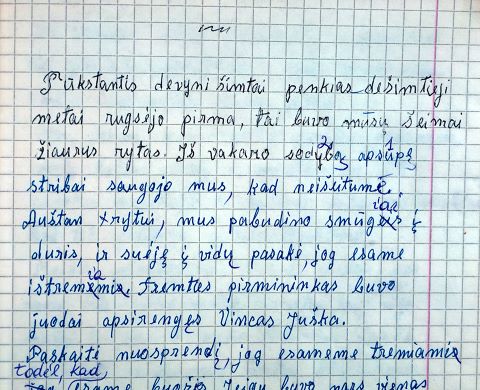 Tūkstantis devyni šimtai penkias dešimtieji
metai rugsėjo pirma, tai buvo mūsų šeimai
žiaurus rytas. Iš vakaro sodybą apsupę
stribai saugojo mus, kad neišeitumė.
Auštant rytui, mus pabudino smūgiai į
duris, ir suėję į vidų pasakė, jog esame
ištremia. Tremties pirmininkas buvo
juodai apsirengęs Vincas Juška.
Paskaitė nuosprendį, jog esameme tremiamis
todėl, kad,
esame buožės. Jeigu buvo nors vienas